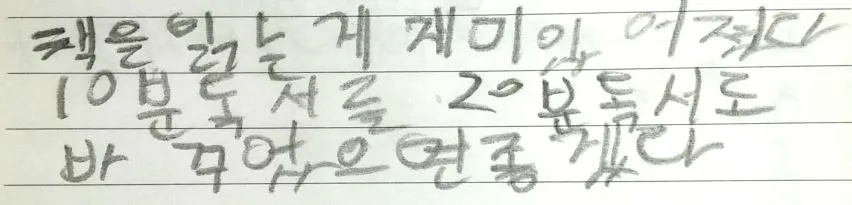 책을 읽는 게 재미있 어졌다
10분 독서를 20분 독서로
바 꾸었으면 좋겠다